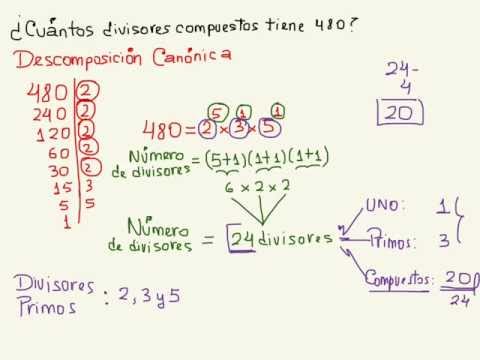 ¿Cuántos divisores compuestos tiene 480?
Descomposición Canónica
480 | 2
240 | 2
120 | 2
60 | 2
30 | 2
15 | 3
5 | 5
1
480 = 2⁵ x 3¹ x 5¹
Número de divisores = (5+1)(1+1)(1+1)
6 x 2 x 2
Número de divisores = 24 divisores
UNO: 1
Primos: 3
Compuestos: 20
24
24-
4
20
Divisores Primos : 2, 3 y 5